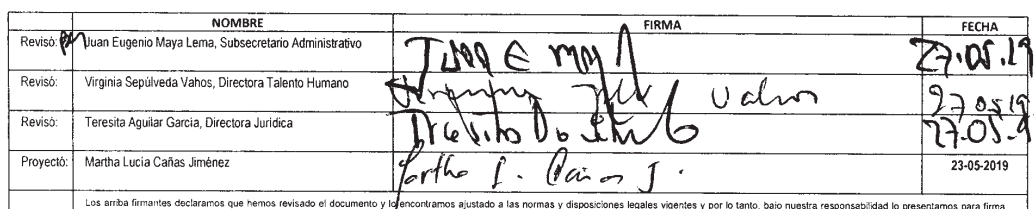 NOMBRE FIRMA FECHA
Revisó: Juan Eugenio Maya Lema, Subsecretario Administrativo 27.05.19
Revisó: Virginia Sepúlveda Vahos, Directora Talento Humano Vahos 27 05 19
Revisó: Teresita Aguilar García, Directora Jurídica 27.05.
Proyectó: Martha Lucía Cañas Jiménez Martha L. Cañas J. 23-05-2019
Los arriba firmantes declaramos que hemos revisado el documento y lo encontramos ajustado a las normas y disposiciones legales vigentes y por lo tanto, bajo nuestra responsabilidad lo presentamos para firma